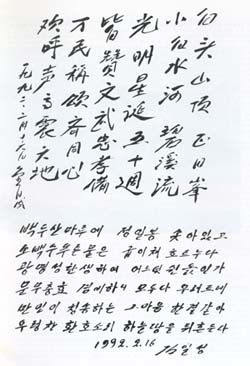 白头山顶正日峯
小白水河碧溪流
光明星诞五十週
皆賛文武忠孝備
万民稱頌齐同心
欢呼声高震天地
一九九二.二月十六日
金日成
백두산마루에 정일봉 솟아있고
소백수푸른물은 굽이쳐 흐르누나
광명성탄생하여 어느덧 쉰돐인가
문무충효 겸비하니 모두다 우러르네
만민이 칭송하는 그마음 한결같아
우렁찬 환호소리 하늘땅을 뒤흔든다
1992.2.16 김일성